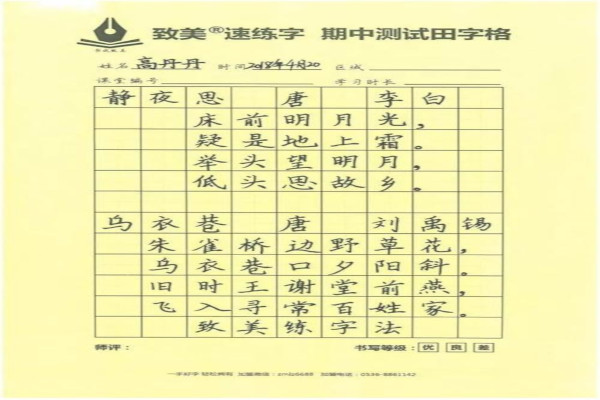 致美®速练字 期中测试田字格
姓名 高丹丹 时间 2018年4月20 区域
课堂编号 学习时长
静夜思 唐 李白
床前明月光，
疑是地上霜。
举头望明月，
低头思故乡。
乌衣巷 唐 刘禹锡
朱雀桥边野草花，
乌衣巷口夕阳斜。
旧时王谢堂前燕，
飞入寻常百姓家。
致美练字法
师评： 书写等级： 优 良 差